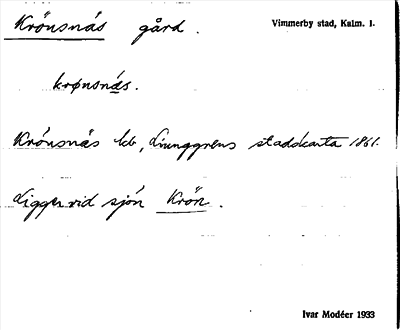 Krönsnäs gård.
Vimmerby stad, Kalm. l.
krønsnäs.
Krönsnäs kb, Ljunggrens stadskarta 1861.
Ligger vid sjön Krön.
Ivar Modéer 1933